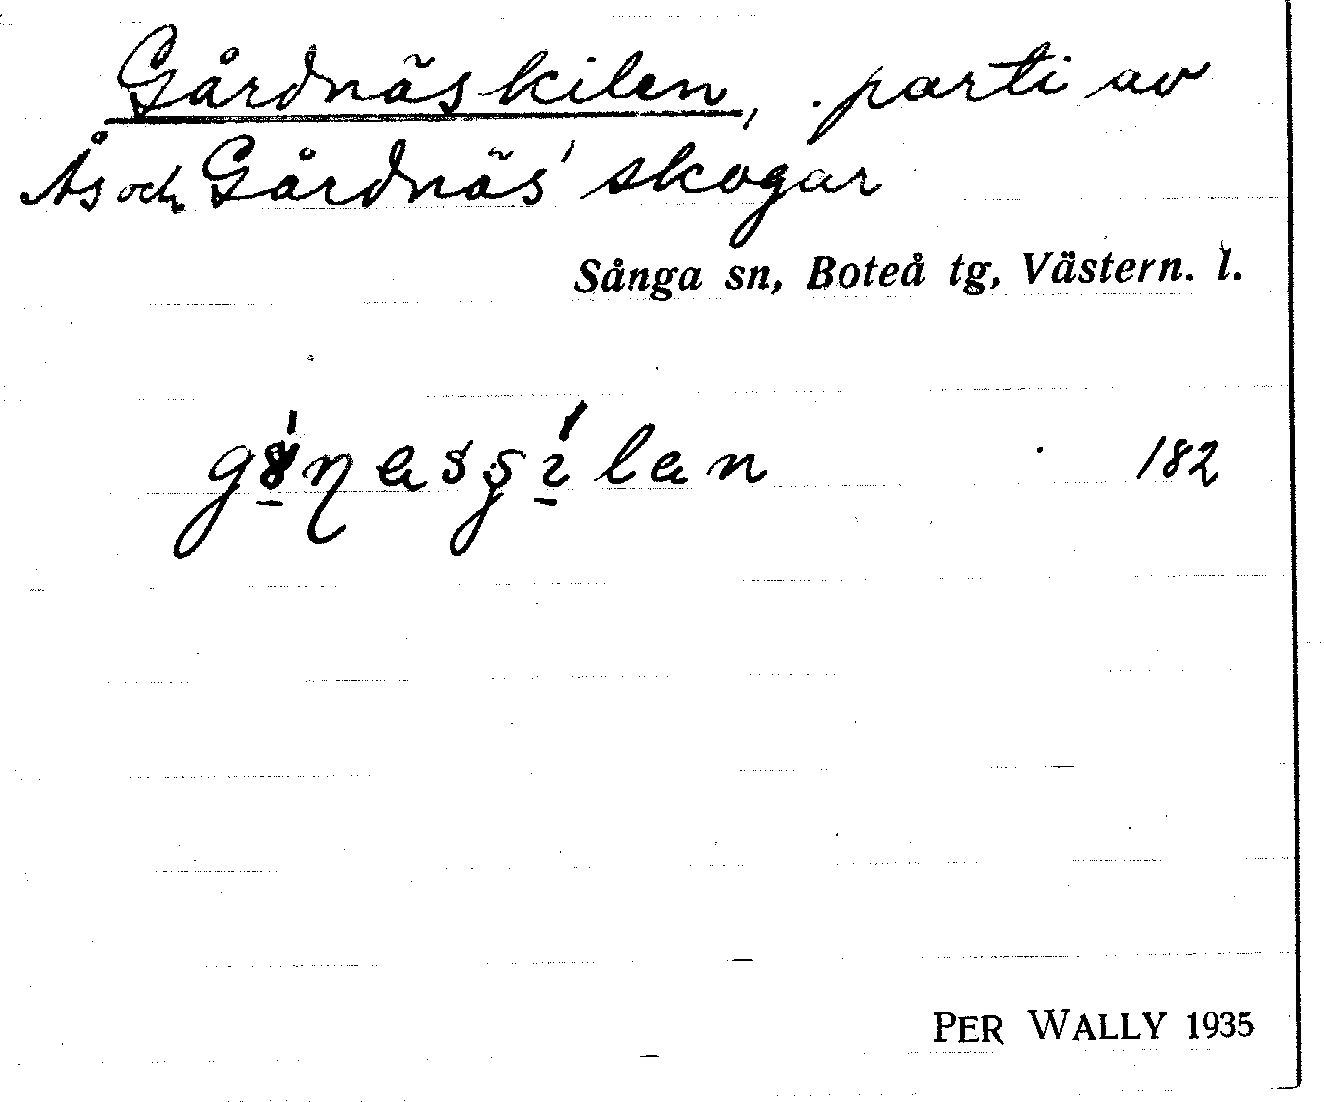 Gårdnäskilen, parti av
Ås och Gårdnäs' skogar
Sånga sn, Boteå tg, Västern. l.
182
PER WALLY 1935